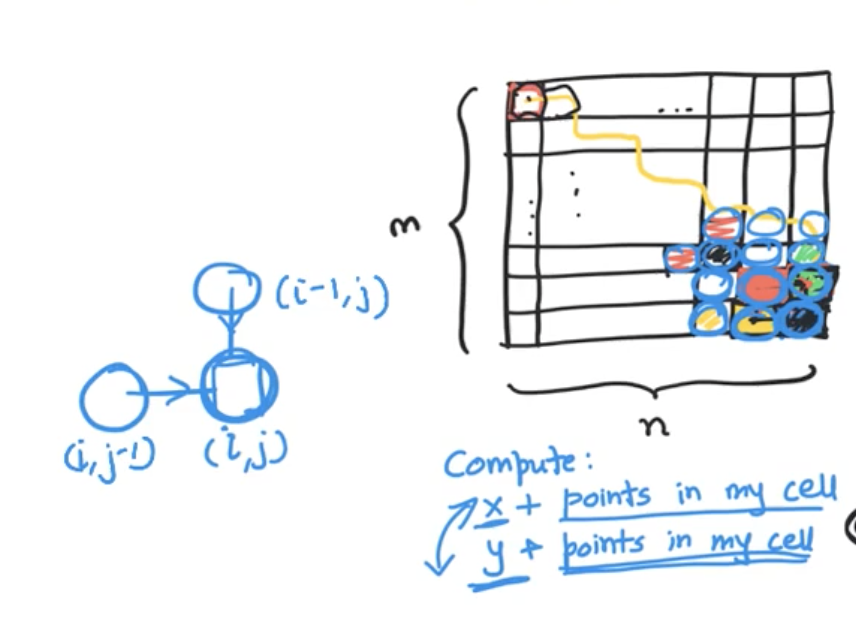 ...
m
(i-1,j)
(i,j-1)
(i,j)
n
Compute:
x + points in my cell
y + points in my cell